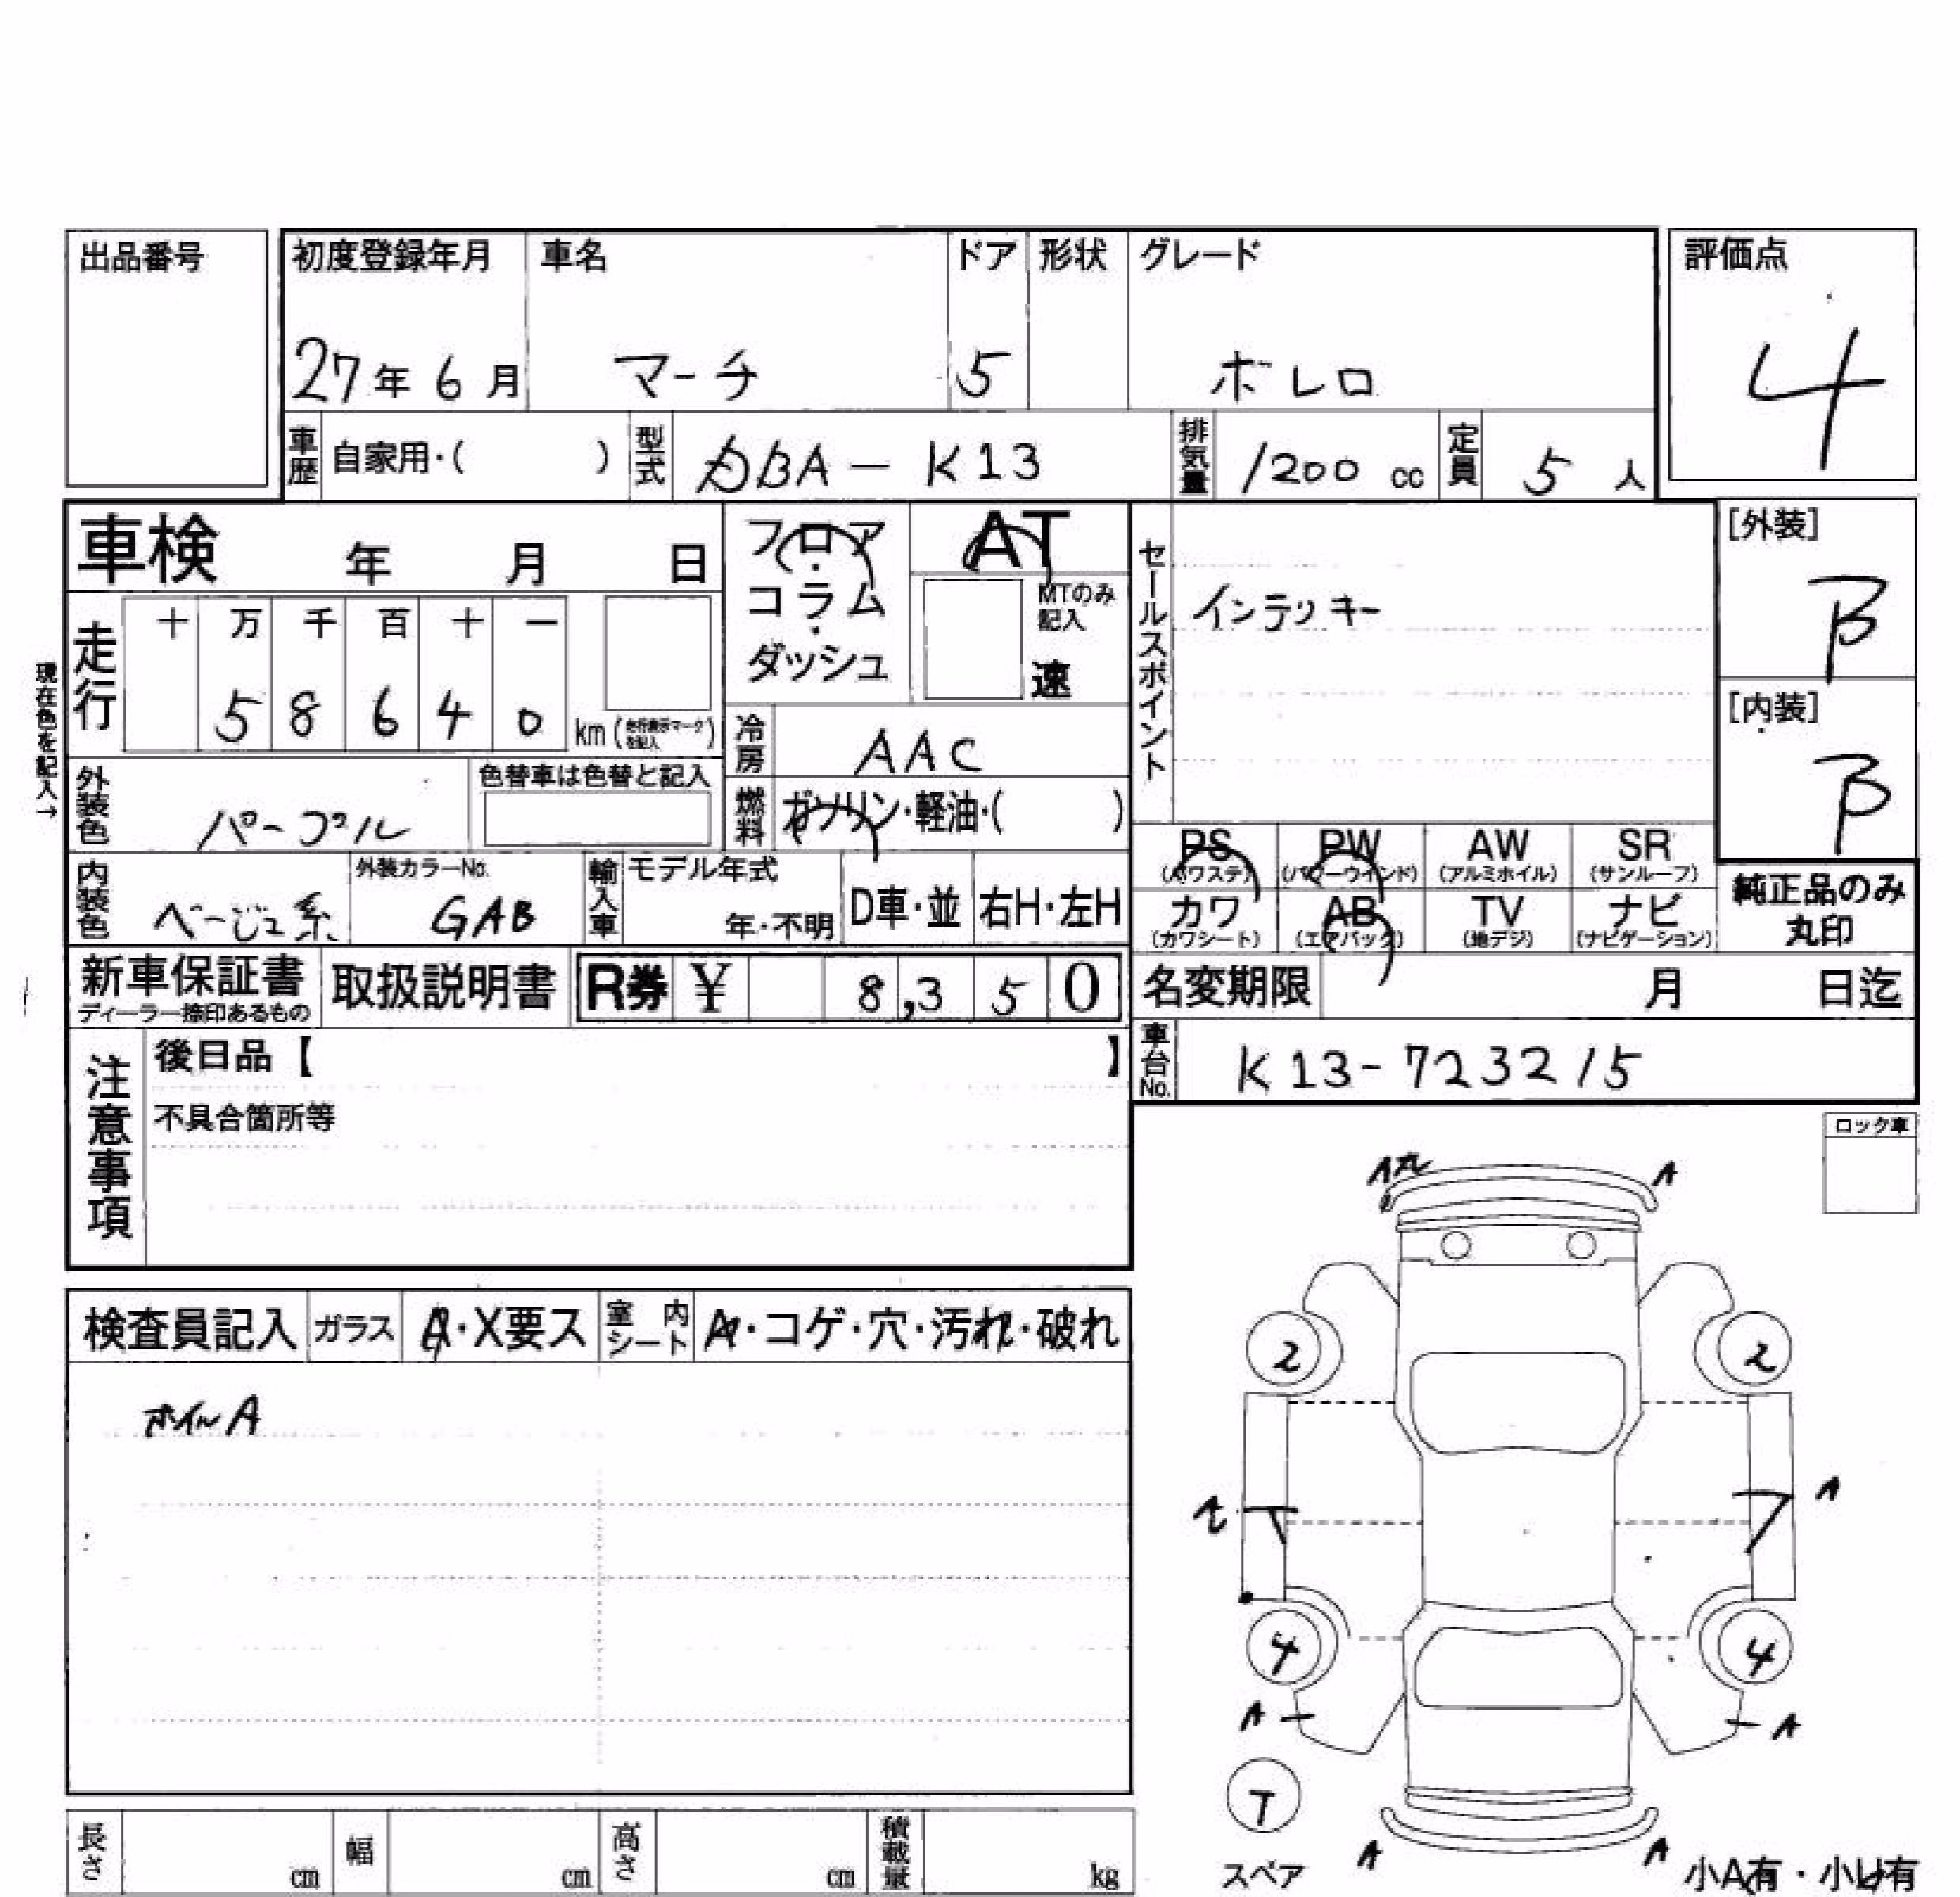 出品番号
初度登録年月 車名 ドア 形状 グレード 評価点
27年 6月 マーチ 5 ボレロ 4
車歴 自家用・( ) 型式 DBA - K13 排気量 1200 cc 定員 5 人
車検 年 月 日
フロア・コラム・ダッシュ
AT
MTのみ記入
速
セールスポイント
インテッキー
[外装]
B
[内装]
B
現在色を記入→
走行 十 万 千 百 十 一
5 8 6 4 0 km (走行表示マークを記入)
冷房 AAC
外装色 パープル 色替車は色替と記入
燃料 ガソリン・軽油・( )
PS (パワステ) PW (パワーウインド) AW (アルミホイル) SR (サンルーフ)
カワ (カワシート) AB (エアバック) TV (地デジ) ナビ (ナビゲーション)
純正品のみ
丸印
内装色 ベージュ系 外装カラーNo. GAB 輸入車 モデル年式 年・不明 D車・並 右H・左H
新車保証書 取扱説明書 R券 ¥ 8,350 名変期限 月 日迄
ディーラー捺印あるもの
車台No. K13-723215
注意事項
後日品【 】
不具合箇所等
ロック車
A A
検査員記入 ガラス A・X要ス 室内シート A・コゲ・穴・汚れ・破れ
ホイルA
2 2
A
4 4
A A
T
スペア
A A
小A有・小U有
長さ cm 幅 cm 高さ cm 積載量 kg